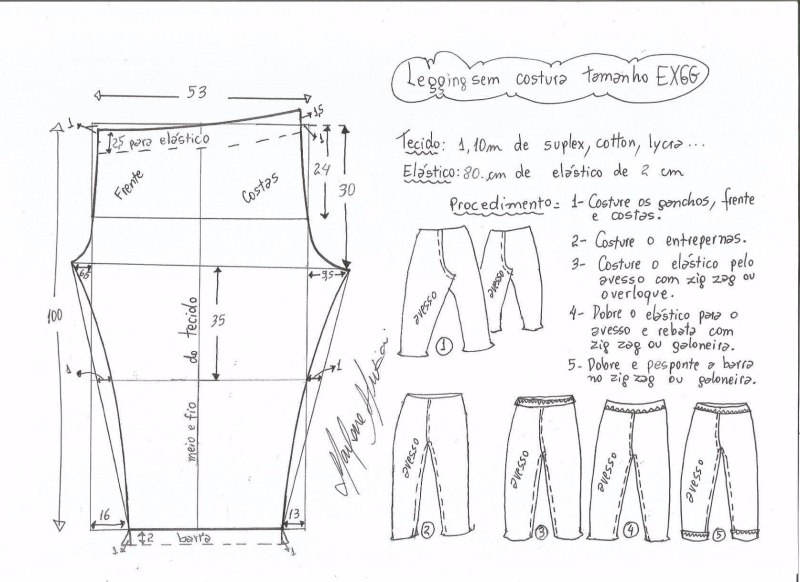 Legging sem costura tamanho EXGG
Tecido: 1,10m de suplex, cotton, lycra...
Elástico: 80 cm de elástico de 2 cm
Procedimento = 1- Costure os ganchos, frente
e costas.
2- Costure o entrepernas.
3- Costure o elástico pelo
avesso com zig zag ou
overloque.
4- Dobre o elástico para o
avesso e rebata com
zig zag ou galoneira.
5- Dobre e pesponte a barra
no zig zag ou galoneira.
53
1
1,5
2,5 para elástico
1
24
30
Frente
Costas
6,5
9,5
100
35
meio e fio do tecido
1
1
16
13
2
barra
1
1
avesso
avesso
1
avesso
2
avesso
3
avesso
4
avesso
5